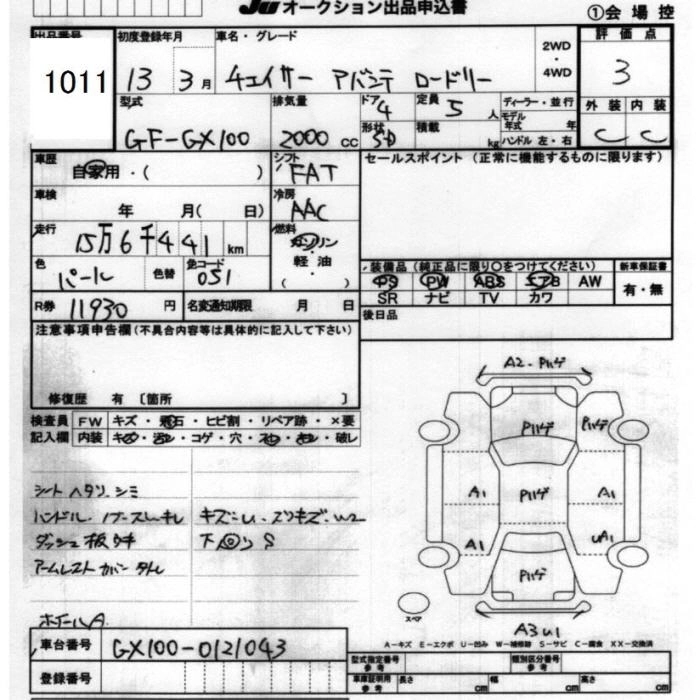 JU オークション出品申込書
①会場控
出品番号 初度登録年月 車名・グレード 評価点
1011 13 3月 チェイサー アバンテ ロードリー 2WD・4WD 3
型式 排気量 ドア 定員 ディーラー・並行 外装 内装
GF-GX100 2000cc 4 5人 モデル年式 年 C C
形状 SD 積載 kg ハンドル 左・右
車歴 自家用・( ) シフト FAT セールスポイント (正常に機能するものに限ります)
車検 年 月( 日) 冷房 AAC
走行 15万6千441km 燃料 ガソリン
軽・油
( )
色 パール 色替 色コード 051
装備品 (純正品に限り○をつけてください) 新車保証書
PS PW ABS エアB AW 有・無
SR ナビ TV カワ
R券 11930円 名変通知期限 月 日 後日品
注意事項申告欄(不具合内容等は具体的に記入して下さい)
修復歴 有 〔箇所 〕
検査員 FW キズ・飛石・ヒビ割・リペア跡・×要
記入欄 内装 キズ・汚れ・コゲ・穴・スレ・キレ・破レ
A2・Pハゲ
Pハゲ Pハゲ
A1 Pハゲ A1
A1 UA1
Pハゲ
スペア
A3U1
シート ヘタリ シミ
ハンドル・ キズ凹・スリキズ・W2
ダッシュ板 下回りS
アームレスト カバー
ホイールA
A-キズ E-エクボ U-凹み W-補修跡 S-サビ C-腐食 XX-交換済
車台番号 GX100-0121043
型式指定番号 参考 類別区分番号 参考
登録番号
車庫証明用 参考 長さ cm 幅 cm 高さ cm